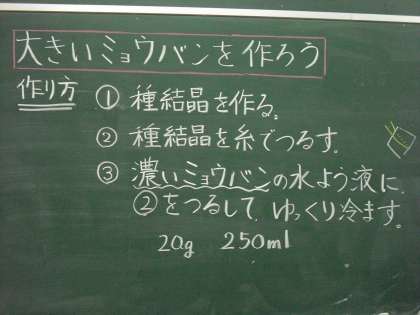 大きいミョウバンを作ろう
作り方 ① 種結晶を作る。
② 種結晶を糸でつるす。
③ 濃いミョウバンの水よう液に
②をつるして、ゆっくり冷ます。
20g 250ml